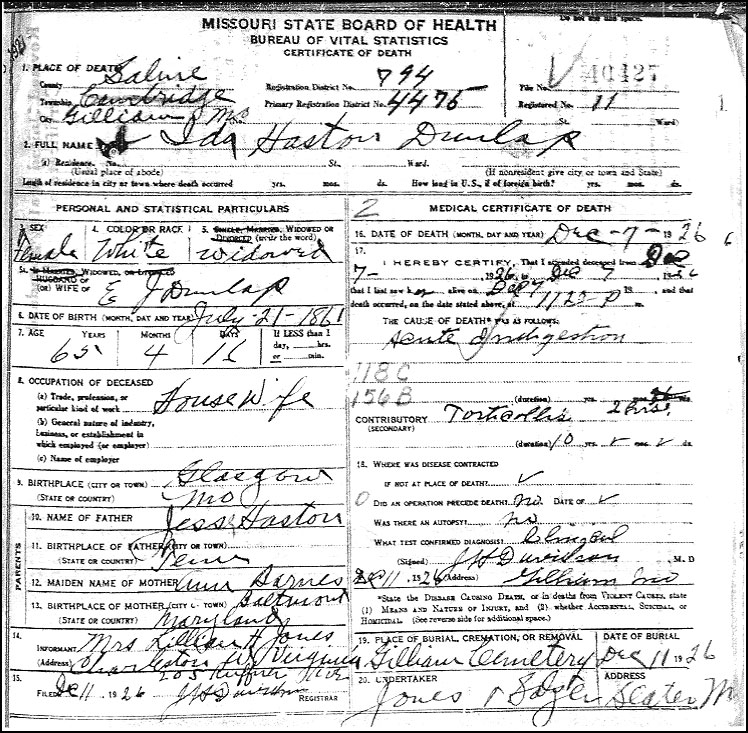 MISSOURI STATE BOARD OF HEALTH
BUREAU OF VITAL STATISTICS
CERTIFICATE OF DEATH
1. PLACE OF DEATH
County Saline
Township Cambridge
City Gilliam Mo
Registration District No. 794
Primary Registration District No. 4475
File No. 40427
Registered No. 11
St. Ward)
2. FULL NAME Ida Haston Dunlap
(a) Residence. No. St. Ward.
(Usual place of abode) (If nonresident give city or town and State)
Length of residence in city or town where death occurred yrs. mos. ds. How long in U.S., if of foreign birth? yrs. mos. ds.
PERSONAL AND STATISTICAL PARTICULARS
3. SEX Female
4. COLOR OR RACE White
5. SINGLE, MARRIED, WIDOWED OR DIVORCED (write the word) Widowed
5a. IF MARRIED, WIDOWED, OR DIVORCED
HUSBAND OF
(OR) WIFE OF E J Dunlap
6. DATE OF BIRTH (MONTH, DAY AND YEAR) July-21-1861
7. AGE YEARS MONTHS DAYS If LESS than 1
day, ......hrs.
or ......min.
65 4 16
8. OCCUPATION OF DECEASED
(a) Trade, profession, or
particular kind of work House Wife
(b) General nature of industry,
business, or establishment in
which employed (or employer)
(c) Name of employer
9. BIRTHPLACE (CITY OR TOWN) Glasgow
(STATE OR COUNTRY) Mo
PARENTS
10. NAME OF FATHER Jess Haston
11. BIRTHPLACE OF FATHER (CITY OR TOWN)
(STATE OR COUNTRY) Tenn
12. MAIDEN NAME OF MOTHER Ann Barnes
13. BIRTHPLACE OF MOTHER (CITY OR TOWN) Baltimore
(STATE OR COUNTRY) Maryland
14.
INFORMANT Mrs Lillian H Jones
(Address) Charleston W Virginia
205 Ruffner Ave
15.
FILED Dec 11 1926 J H Davidson REGISTRAR
2 MEDICAL CERTIFICATE OF DEATH
16. DATE OF DEATH (MONTH, DAY AND YEAR) Dec-7-1926
17.
I HEREBY CERTIFY, That I attended deceased from Dec
7- 1926 to Dec 7 1926
that I last saw her alive on Dec 7 19, and that
death occurred, on the date stated above, at 1123-P m.
THE CAUSE OF DEATH* WAS AS FOLLOWS:
Acute Indigestion
118C
156B
(duration) yrs. mos. 2 hrs.
CONTRIBUTORY Torticollis
(SECONDARY)
(duration) 10 yrs. mos. ds.
18. WHERE WAS DISEASE CONTRACTED
IF NOT AT PLACE OF DEATH?
0 DID AN OPERATION PRECEDE DEATH? no. DATE OF
WAS THERE AN AUTOPSY? no
WHAT TEST CONFIRMED DIAGNOSIS? Clinical
(Signed) J H Davidson, M.D
Dec 11, 1926 (Address) Gilliam Mo
*State the DISEASE CAUSING DEATH, or in deaths from VIOLENT CAUSES, state
(1) MEANS AND NATURE OF INJURY, and (2) whether ACCIDENTAL, SUICIDAL, or
HOMICIDAL. (See reverse side for additional space.)
19. PLACE OF BURIAL, CREMATION, OR REMOVAL DATE OF BURIAL
Gilliam Cemetery Dec 11 1926
20. UNDERTAKER ADDRESS
Jones Slater Mo